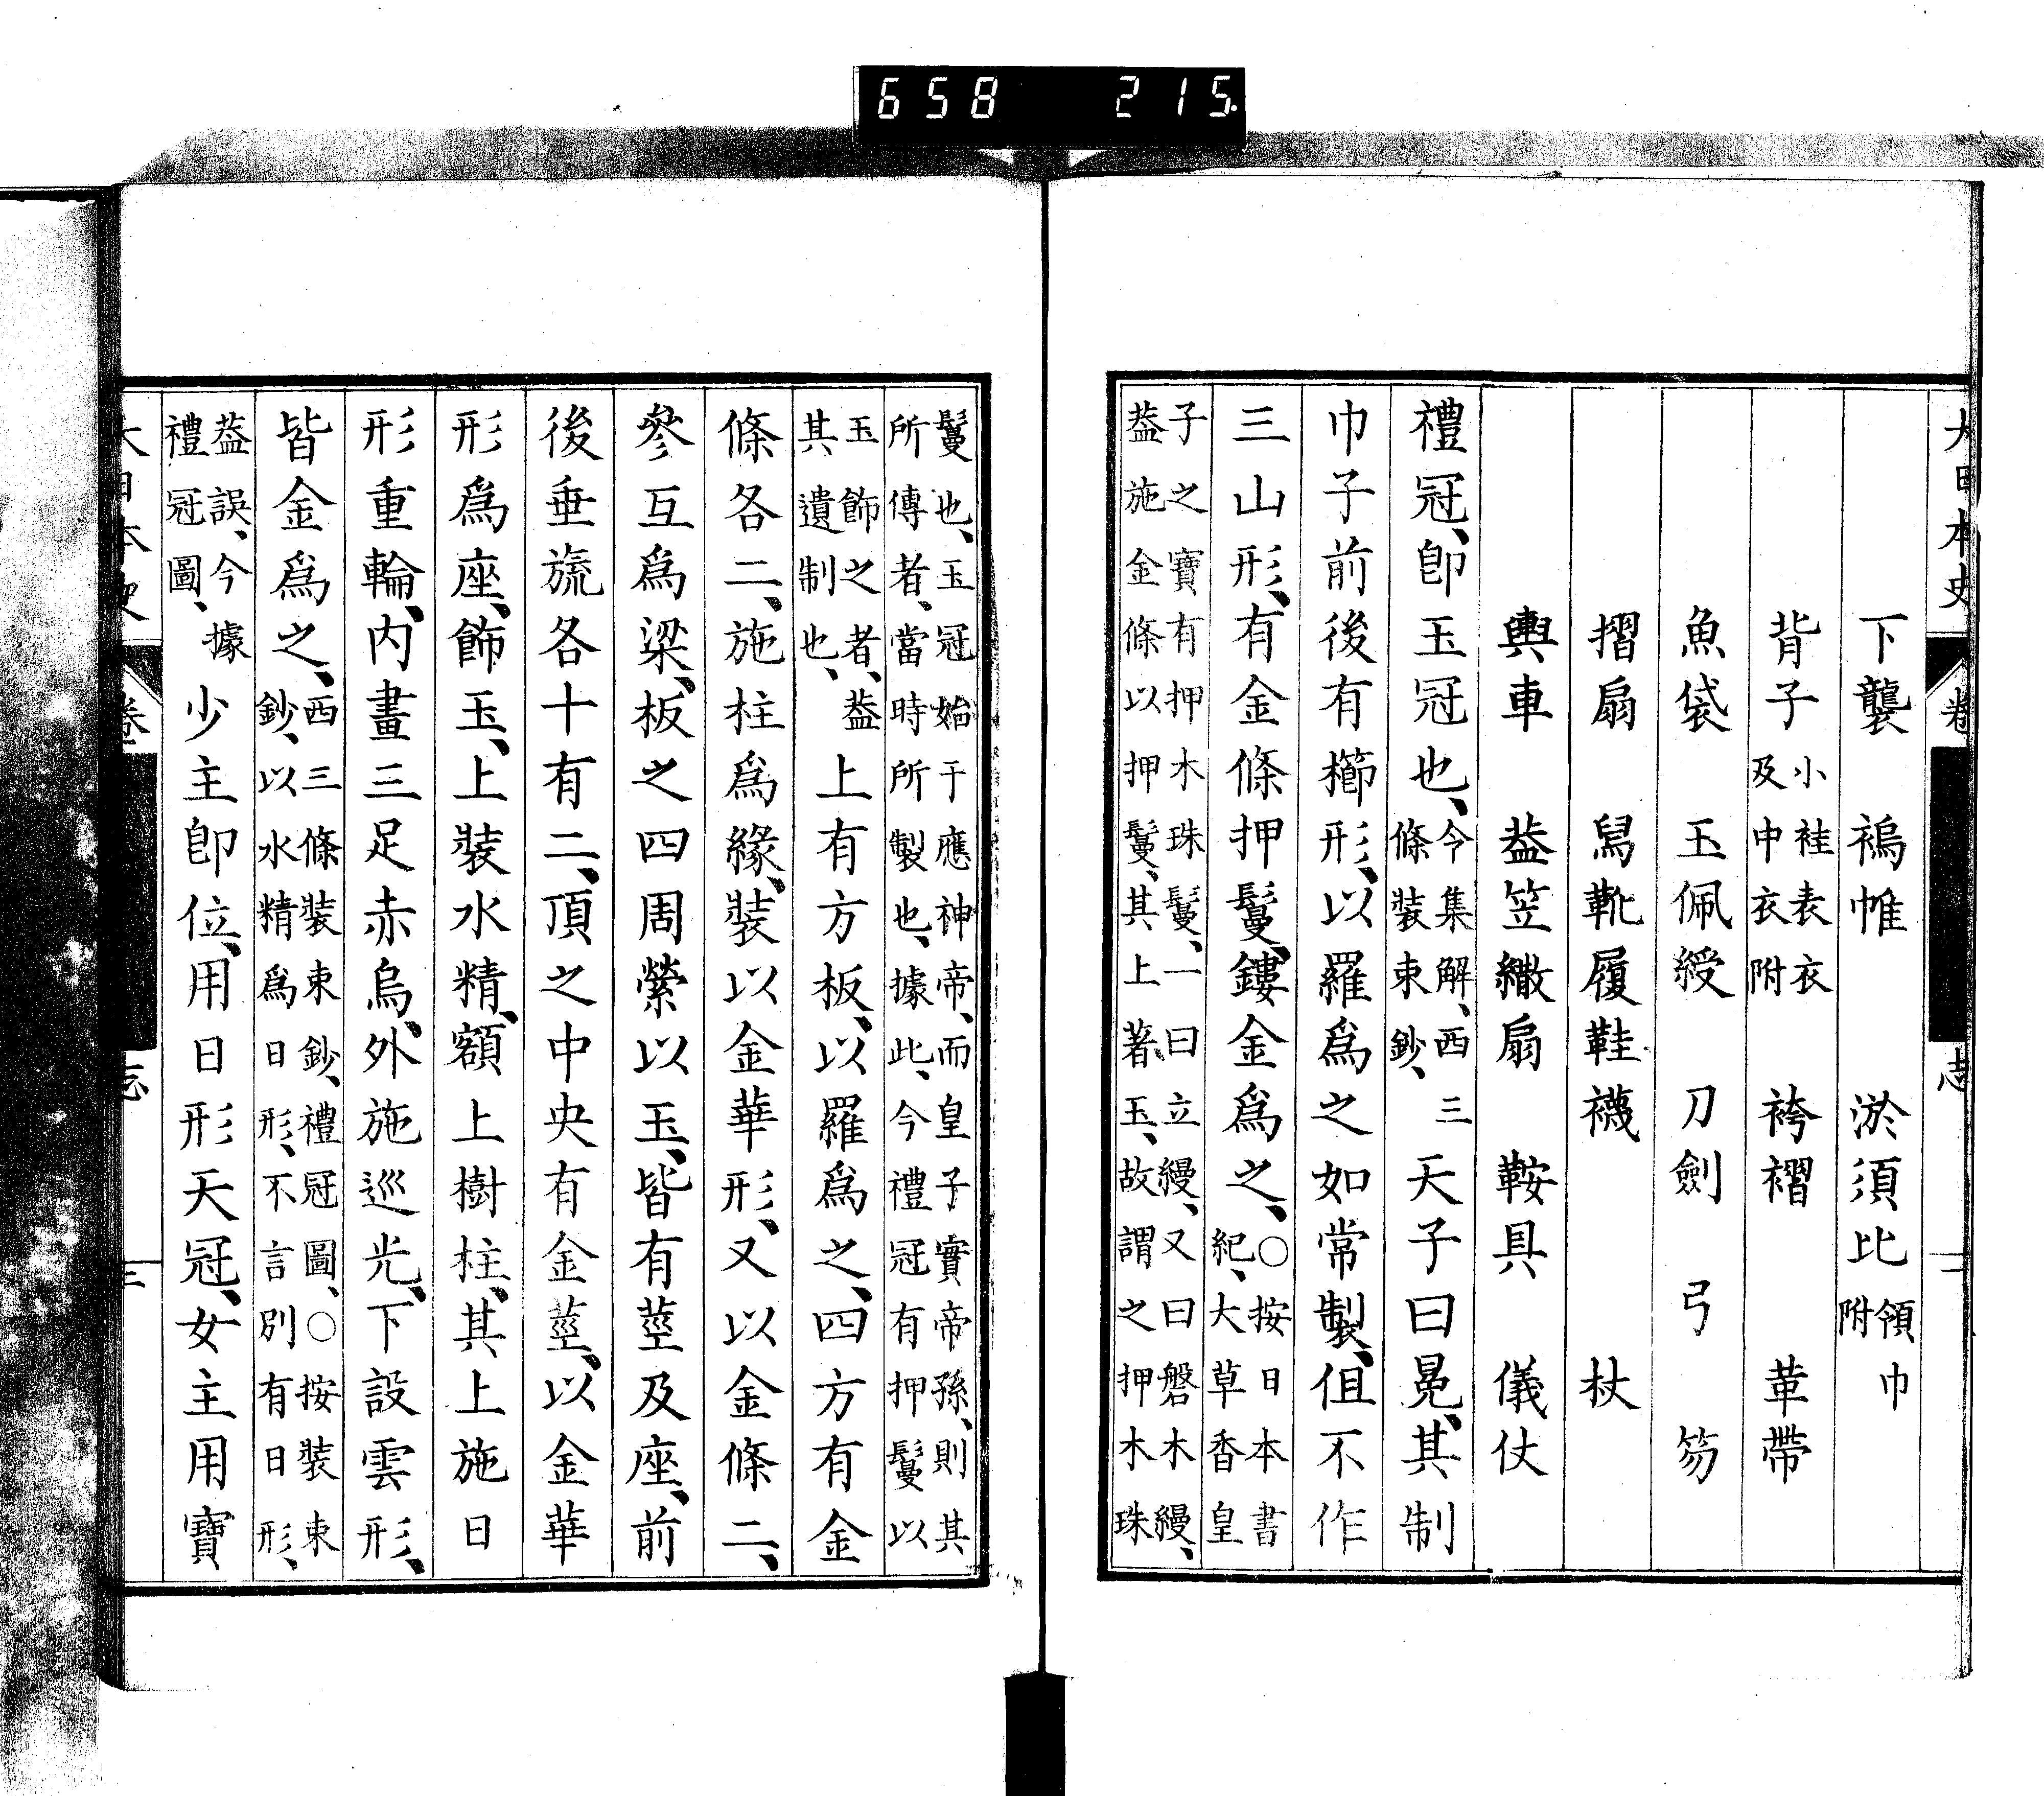 658 215
大日本史 卷 志 二
下襲 裲帷 淤須比領巾附
背子小袿表衣及中衣附 袴褶 革帶
魚袋 玉佩綬 刀劍 弓 笏
摺扇 舃靴履鞋襪 杖
輿車 葢笠繖扇 鞍具 儀仗
禮冠、卽玉冠也、令集解、西三條裝束鈔、天子曰冕、其制
巾子前後有櫛形、以羅爲之如常製、但不作
三山形、有金條押鬘、鏤金爲之、○按日本書紀、大草香皇
子之寶有押木珠鬘、一曰立縵、又曰磐木縵、葢施金條以押鬘、其上著玉、故謂之押木珠
鬘也、玉冠始于應神帝、而皇子實帝孫、則其所傳者、當時所製也、據此、今禮冠有押鬘以
玉飾之者、葢其遺制也、上有方板、以羅爲之、四方有金
條各二、施柱爲緣、裝以金華形、又以金條二、
參互爲梁、板之四周縈以玉、皆有莖及座、前
後垂旒各十有二、頂之中央有金莖、以金華
形爲座、飾玉、上裝水精、額上樹柱、其上施日
形重輪、內畫三足赤烏、外施巡光、下設雲形、
皆金爲之、西三條裝束鈔、禮冠圖、○按裝束鈔、以水精爲日形、不言別有日形、
葢誤、今據禮冠圖、少主卽位、用日形天冠、女主用寶
大日本史 卷 志 三